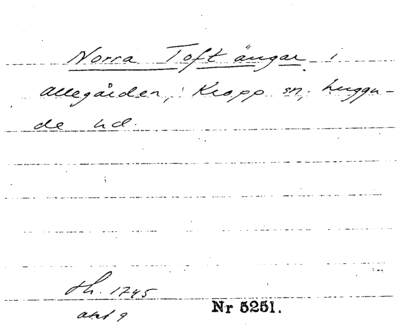 Norra Toft ängar i
allegården, Kropp sn, Luggu-
de hd.
th. 1745
akt 9
Nr 5251.